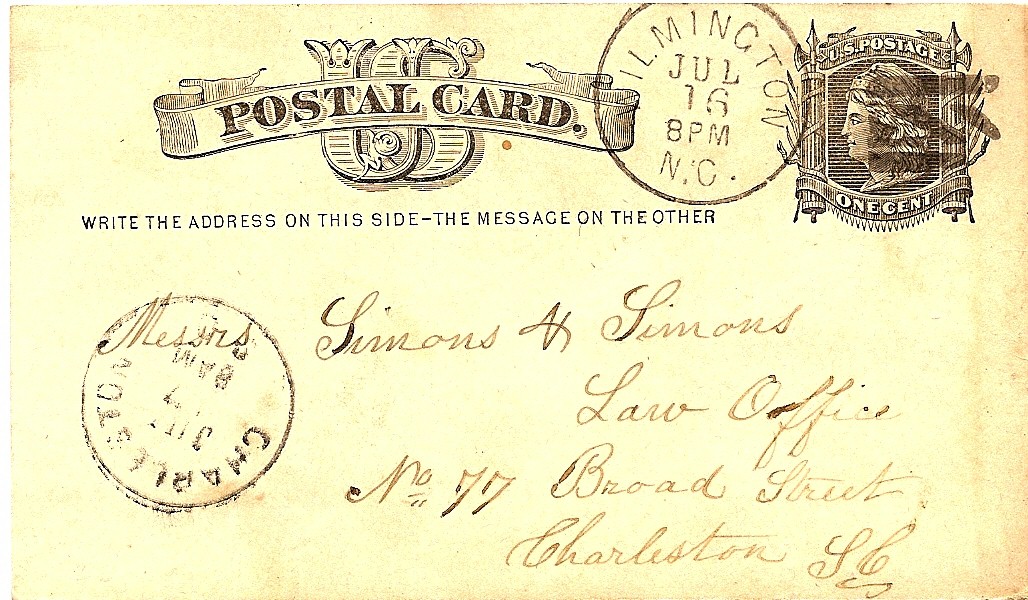 U.S. POSTAGE
POSTAL CARD.
US
ONE CENT
WILMINGTON
JUL
16
8 PM
N.C.
WRITE THE ADDRESS ON THIS SIDE–THE MESSAGE ON THE OTHER
Messrs Simons & Simons
Law Office
No 77 Broad Street
Charleston SC
CHARLESTON
JUL
8 AM